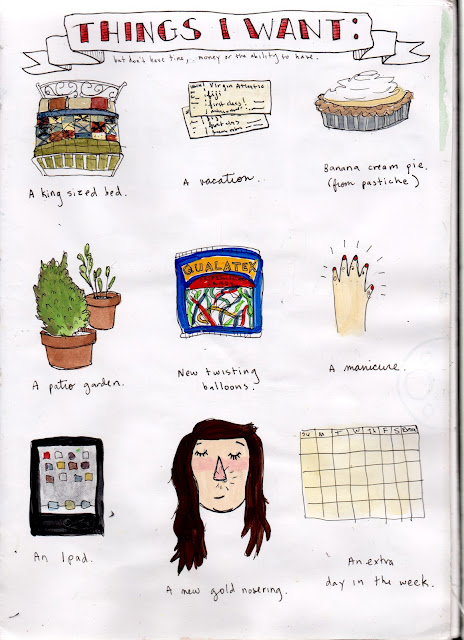 THINGS I WANT:
but don't have time, money or the ability to have.
A king sized bed.
A vacation.
Virgin Atlantic
fiji
first class!
Banana cream pie.
(from pastiche)
A patio garden.
QUALATEX
New twisting
balloons.
A manicure.
An Ipad.
A new gold nosering.
Su M T W Th F S Extra
An extra
day in the week.